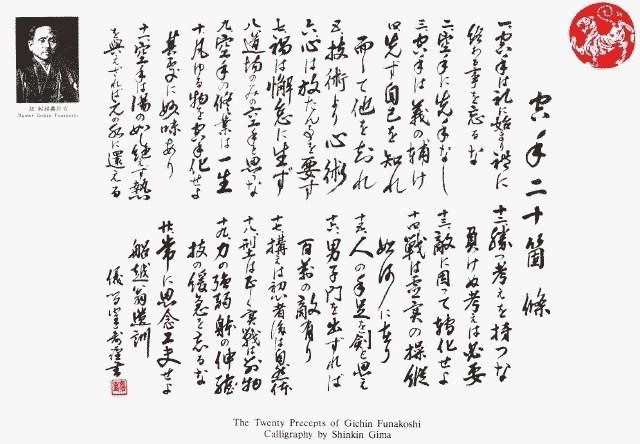 空手二十箇條
一空手は礼に始まり礼に
終わる事を忘るな
二空手に先手なし
三空手は義の輔け
四先ず自己を知れ
而して他を知れ
五技術より心術
六心は放たん事を要す
七禍は懈怠に生ず
八道場のみの空手と思うな
九空手の修業は一生
十凡ゆる物を空手化せよ
其処に妙味あり
十一空手は湯の如し絶えず熱
を与えざれば元の水に還える
十二勝つ考えを持つな
負けぬ考えは必要
十三敵に因って転化せよ
十四戦は虚実の操縦
如何に在り
十五人の手足を剣と思え
十六男子門を出ずれば
百萬の敵有り
十七構えは初心者後は自然体
十八型は正しく実戦は別物
十九力の強弱躰の伸縮
技の緩急を忘るな
廿常に思念工夫せよ
船越翁遺訓
儀間真謹書
Master Gichin Funakoshi
The Twenty Precepts of Gichin Funakoshi
Calligraphy by Shinkin Gima